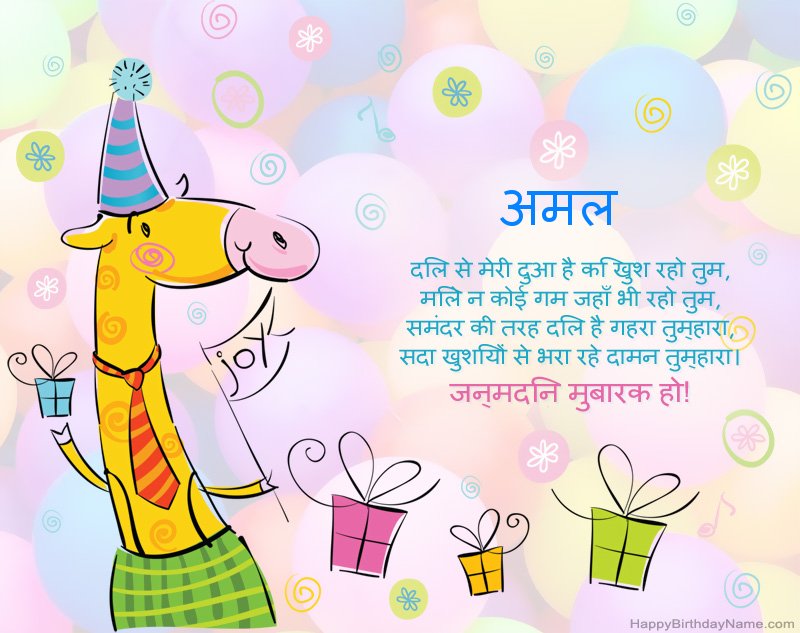 अमल
दिल से मेरी दुआ है कि खुश रहो तुम,
मिले न कोई गम जहाँ भी रहो तुम,
समंदर की तरह दिल है गहरा तुम्हारा,
सदा खुशियों से भरा रहे दामन तुम्हारा।
जन्मदिन मुबारक हो!
joy
HappyBirthdayName.com